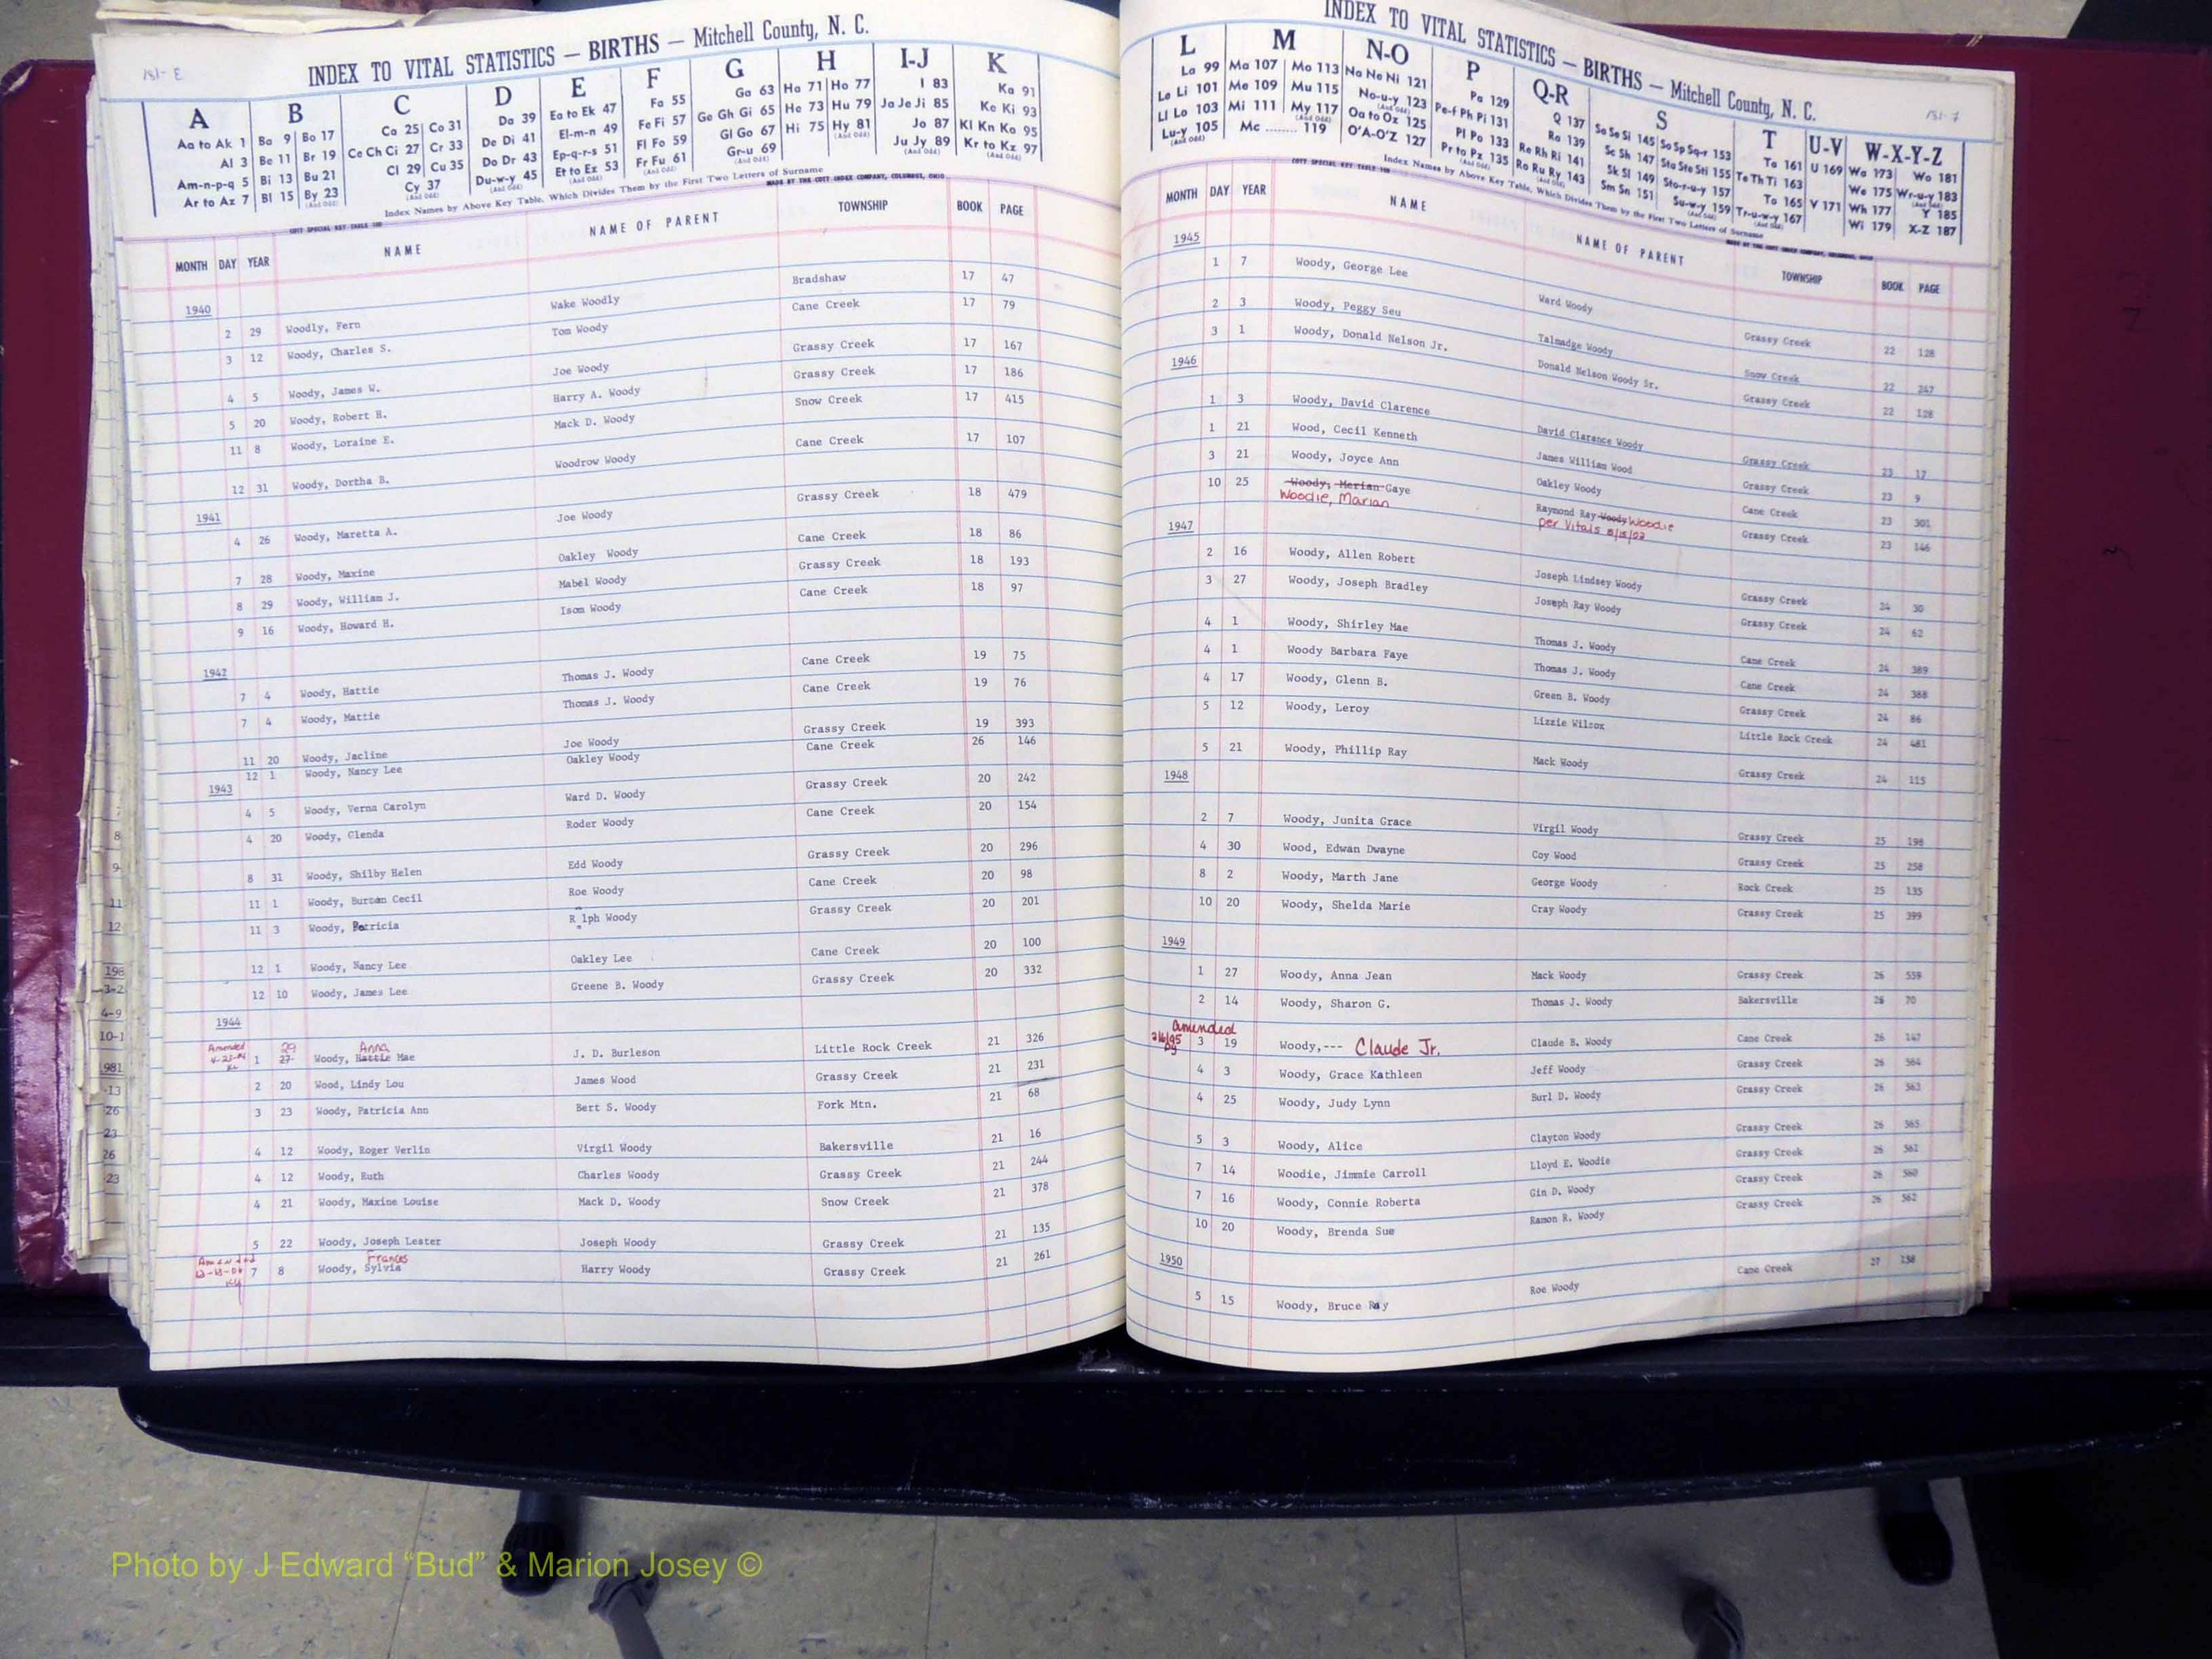 181-E
INDEX TO VITAL STATISTICS — BIRTHS — Mitchell County, N. C.
A B C D E F G H I-J K
Aa to Ak 1 Ba 9 Bo 17 Ca 25 Co 31 Da 39 Ea to Ek 47 Fa 55 Ga 63 Ha 71 Ho 77 I 83 Ka 91
Al 3 Be 11 Br 19 Ce Ch Ci 27 Cr 33 De Di 41 El-m-n 49 Fe Fi 57 Ge Gh Gi 65 He 73 Hu 79 Ja Je Ji 85 Ke Ki 93
Am-n-p-q 5 Bi 13 Bu 21 Cl 29 Cu 35 Do Dr 43 Ep-q-r-s 51 Fl Fo 59 Gl Go 67 Hi 75 Hy 81 (And Odd) Jo 87 Kl Kn Ko 95
Ar to Az 7 Bl 15 By 23 (And Odd) Cy 37 (And Odd) Du-w-y 45 (And Odd) Et to Ez 53 (And Odd) Fr Fu 61 (And Odd) Gr-u 69 (And Odd) Ju Jy 89 (And Odd) Kr to Kz 97 (And Odd)
Index Names by Above Key Table, Which Divides Them by the First Two Letters of Surname
MADE BY THE COTT INDEX COMPANY, COLUMBUS, OHIO
MONTH DAY YEAR NAME NAME OF PARENT TOWNSHIP BOOK PAGE
1940
2 29 Woodly, Fern Wake Woodly Bradshaw 17 47
3 12 Woody, Charles S. Tom Woody Cane Creek 17 79
4 5 Woody, James W. Joe Woody Grassy Creek 17 167
5 20 Woody, Robert H. Harry A. Woody Grassy Creek 17 186
11 8 Woody, Loraine E. Mack D. Woody Snow Creek 17 415
12 31 Woody, Dortha B. Woodrow Woody Cane Creek 17 107
1941
4 26 Woody, Maretta A. Joe Woody Grassy Creek 18 479
7 28 Woody, Maxine Oakley Woody Cane Creek 18 86
8 29 Woody, William J. Mabel Woody Grassy Creek 18 193
9 16 Woody, Howard H. Isom Woody Cane Creek 18 97
1942
7 4 Woody, Hattie Thomas J. Woody Cane Creek 19 75
7 4 Woody, Mattie Thomas J. Woody Cane Creek 19 76
11 20 Woody, Jacline Joe Woody Grassy Creek 19 393
12 1 Woody, Nancy Lee Oakley Woody Cane Creek 26 146
1943
4 5 Woody, Verna Carolyn Ward D. Woody Grassy Creek 20 242
4 20 Woody, Glenda Roder Woody Cane Creek 20 154
8 31 Woody, Shilby Helen Edd Woody Grassy Creek 20 296
11 1 Woody, Burton Cecil Roe Woody Cane Creek 20 98
11 3 Woody, Patricia R lph Woody Grassy Creek 20 201
12 1 Woody, Nancy Lee Oakley Lee Cane Creek 20 100
12 10 Woody, James Lee Greene B. Woody Grassy Creek 20 332
1944
Amended 29 Anna
1 27 Woody, Hattie Mae J. D. Burleson Little Rock Creek 21 326
2 20 Wood, Lindy Lou James Wood Grassy Creek 21 231
3 23 Woody, Patricia Ann Bert S. Woody Fork Mtn. 21 68
4 12 Woody, Roger Verlin Virgil Woody Bakersville 21 16
4 12 Woody, Ruth Charles Woody Grassy Creek 21 244
4 21 Woody, Maxine Louise Mack D. Woody Snow Creek 21 378
5 22 Woody, Joseph Lester Joseph Woody Grassy Creek 21 135
Amended Frances
7 8 Woody, Sylvia Harry Woody Grassy Creek 21 261
INDEX TO VITAL STATISTICS — BIRTHS — Mitchell County, N. C.
L M N-O P Q-R S T U-V W-X-Y-Z
La 99 Ma 107 Mo 113 Na Ne Ni 121 Pa 129 Q 137 Sa Se Si 145 So Sp Sq-r 153 Ta 161 U 169 Wa 173 Wo 181
Le Li 101 Me 109 Mu 115 No-u-y 123 (And Odd) Pe-f Ph Pi 131 Ra 139 Sc Sh 147 Sta Ste Sti 155 Te Th Ti 163 We 175 Wr-u-y 183 (And Odd)
Ll Lo 103 Mi 111 My 117 (And Odd) Oa to Oz 125 Pl Po 133 Re Rh Ri 141 Sk Sl 149 Sto-r-u-y 157 To 165 V 171 Wh 177 Y 185
Lu-y 105 (And Odd) Mc ........ 119 O'A-O'Z 127 Pr to Pz 135 (And Odd) Ro Ru Ry 143 (And Odd) Sm Sn 151 Su-w-y 159 (And Odd) Tr-u-w-y 167 (And Odd) Wi 179 X-Z 187
Index Names by Above Key Table, Which Divides Them by the First Two Letters of Surname
MONTH DAY YEAR NAME NAME OF PARENT TOWNSHIP BOOK PAGE
1945
1 7 Woody, George Lee Ward Woody Grassy Creek 22 128
2 3 Woody, Peggy Seu Talmadge Woody Snow Creek 22 247
3 1 Woody, Donald Nelson Jr. Donald Nelson Woody Sr. Grassy Creek 22 128
1946
1 3 Woody, David Clarence David Clarance Woody Grassy Creek 23 17
1 21 Wood, Cecil Kenneth James William Wood Grassy Creek 23 9
3 21 Woody, Joyce Ann Oakley Woody Cane Creek 23 301
10 25 Woody, Merian Gaye Raymond Ray Woody Woodie Grassy Creek 23 146
Woodie, Marian per Vitals
1947
2 16 Woody, Allen Robert Joseph Lindsey Woody Grassy Creek 24 30
3 27 Woody, Joseph Bradley Joseph Ray Woody Grassy Creek 24 62
4 1 Woody, Shirley Mae Thomas J. Woody Cane Creek 24 389
4 1 Woody Barbara Faye Thomas J. Woody Cane Creek 24 388
4 17 Woody, Glenn B. Green B. Woody Grassy Creek 24 86
5 12 Woody, Leroy Lizzie Wilcox Little Rock Creek 24 481
5 21 Woody, Phillip Ray Mack Woody Grassy Creek 24 115
1948
2 7 Woody, Junita Grace Virgil Woody Grassy Creek 25 198
4 30 Wood, Edwan Dwayne Coy Wood Grassy Creek 25 258
8 2 Woody, Marth Jane George Woody Rock Creek 25 135
10 20 Woody, Shelda Marie Cray Woody Grassy Creek 25 399
1949
1 27 Woody, Anna Jean Mack Woody Grassy Creek 26 559
2 14 Woody, Sharon G. Thomas J. Woody Bakersville 26 70
Amended
3 19 Woody,--- Claude Jr. Claude B. Woody Cane Creek 26 147
4 3 Woody, Grace Kathleen Jeff Woody Grassy Creek 26 564
4 25 Woody, Judy Lynn Burl D. Woody Grassy Creek 26 563
5 3 Woody, Alice Clayton Woody Grassy Creek 26 565
7 14 Woodie, Jimmie Carroll Lloyd E. Woodie Grassy Creek 26 561
7 16 Woody, Connie Roberta Gin D. Woody Grassy Creek 26 560
10 20 Woody, Brenda Sue Ramon R. Woody Grassy Creek 26 562
1950
5 15 Woody, Bruce Ray Roe Woody Cane Creek 27 158
Photo by J Edward “Bud” & Marion Josey ©